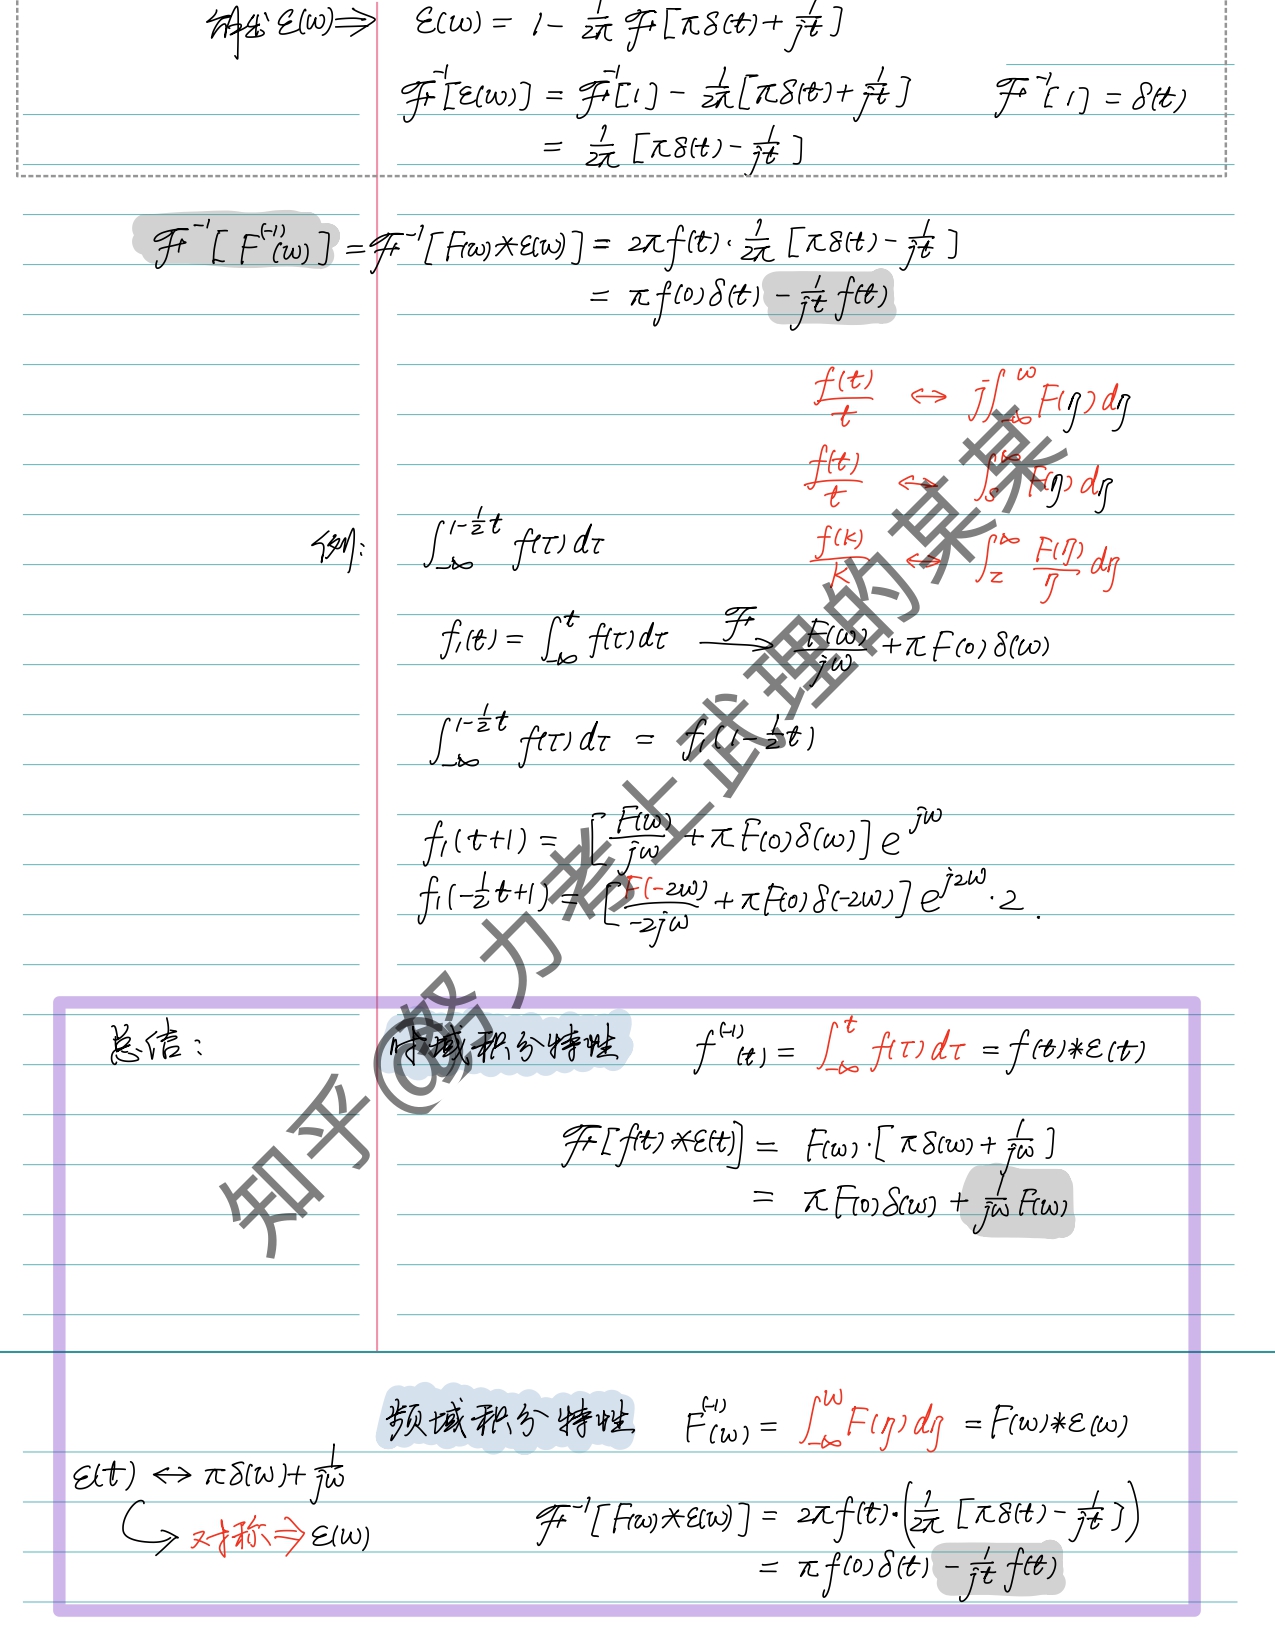 解出 ε(ω) ⇒ ε(ω) = 1 - 1/2π ℱ[πδ(t) + 1/jt]
ℱ⁻¹[ε(ω)] = ℱ⁻¹[1] - 1/2π [πδ(t) + 1/jt] ℱ⁻¹[1] = δ(t)
= 1/2π [πδ(t) - 1/jt]
ℱ⁻¹[F⁽⁻¹⁾(ω)] = ℱ⁻¹[F(ω)*ε(ω)] = 2πf(t)·1/2π [πδ(t) - 1/jt]
= πf(0)δ(t) - 1/jt f(t)
f(t)/t ↔ j∫_{-∞}^{ω} F(η)dη
f(t)/t ↔ ∫_{s}^{∞} F(η)dη
例: ∫_{-∞}^{1-½t} f(τ)dτ
f(k)/k ↔ ∫_{z}^{∞} F(η)/η dη
f₁(t) = ∫_{-∞}^{t} f(τ)dτ ℱ→ F(ω)/jω + πF(0)δ(ω)
∫_{-∞}^{1-½t} f(τ)dτ = f₁(1-½t)
f₁(t+1) = [F(ω)/jω + πF(0)δ(ω)] e^{jω}
f₁(-½t+1) = [F(-2ω)/-2jω + πF(0)δ(-2ω)] e^{j2ω}·2.
总结: 时域积分特性 f⁽⁻¹⁾(t) = ∫_{-∞}^{t} f(τ)dτ = f(t)*ε(t)
ℱ[f(t)*ε(t)] = F(ω)·[πδ(ω) + 1/jω]
= πF(0)δ(ω) + 1/jω F(ω)
频域积分特性 F⁽⁻¹⁾(ω) = ∫_{-∞}^{ω} F(η)dη = F(ω)*ε(ω)
ε(t) ↔ πδ(ω) + 1/jω
对称 ⇒ ε(ω)
ℱ⁻¹[F(ω)*ε(ω)] = 2πf(t)·(1/2π [πδ(t) - 1/jt])
= πf(0)δ(t) - 1/jt f(t)
知乎@努力考上武理的某某